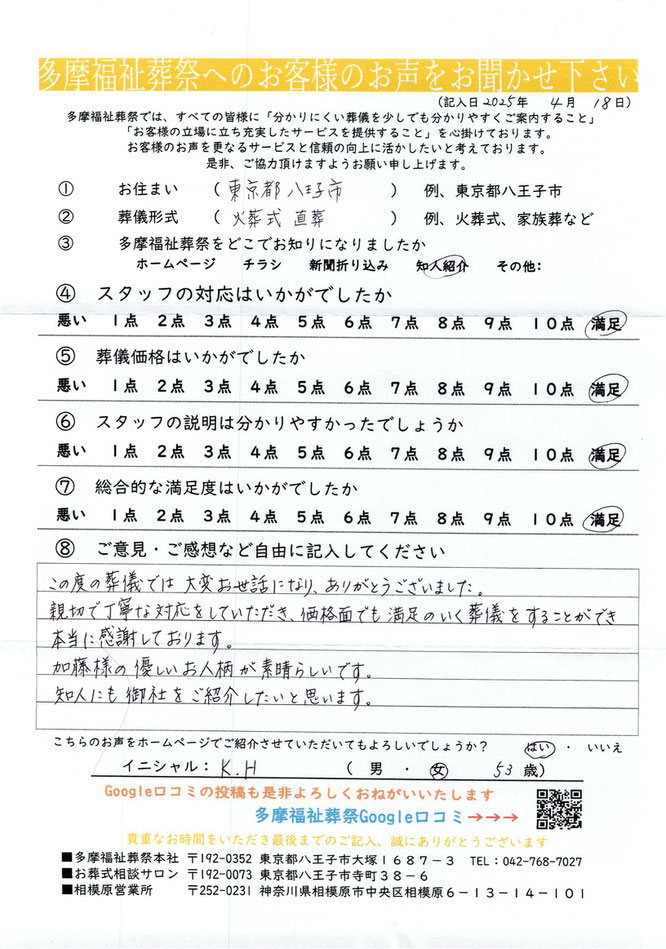 多摩福祉葬祭へのお客様のお声をお聞かせ下さい
(記入日2025年 4月 18日)
多摩福祉葬祭では、すべての皆様に「分かりにくい葬儀を少しでも分かりやすくご案内すること」
「お客様の立場に立ち充実したサービスを提供すること」を心掛けております。
お客様のお声を更なるサービスと信頼の向上に活かしたいと考えております。
是非、ご協力頂けますようお願い申し上げます。
① お住まい (東京都八王子市) 例、東京都八王子市
② 葬儀形式 (火葬式 直葬) 例、火葬式、家族葬など
③ 多摩福祉葬祭をどこでお知りになりましたか
ホームページ チラシ 新聞折り込み 知人紹介 その他:
④ スタッフの対応はいかがでしたか
悪い 1点 2点 3点 4点 5点 6点 7点 8点 9点 10点 満足
⑤ 葬儀価格はいかがでしたか
悪い 1点 2点 3点 4点 5点 6点 7点 8点 9点 10点 満足
⑥ スタッフの説明は分かりやすかったでしょうか
悪い 1点 2点 3点 4点 5点 6点 7点 8点 9点 10点 満足
⑦ 総合的な満足度はいかがでしたか
悪い 1点 2点 3点 4点 5点 6点 7点 8点 9点 10点 満足
⑧ ご意見・ご感想など自由に記入してください
この度の葬儀では大変お世話になり、ありがとうございました。
親切で丁寧な対応をしていただき、価格面でも満足のいく葬儀をすることができ
本当に感謝しております。
加藤様の優しいお人柄が素晴らしいです。
知人にも御社をご紹介したいと思います。
こちらのお声をホームページでご紹介させていただいてもよろしいでしょうか? はい ・ いいえ
イニシャル: K.H (男 ・ 女 53歳)
Google口コミの投稿も是非よろしくおねがいいたします
多摩福祉葬祭Google口コミ→→→
貴重なお時間をいただき最後までのご記入、誠にありがとうございます
■多摩福祉葬祭本社 〒192-0352 東京都八王子市大塚1687-3 TEL:042-768-7027
■お葬式相談サロン 〒192-0073 東京都八王子市寺町38-6
■相模原営業所 〒252-0231 神奈川県相模原市中央区相模原6-13-14-101